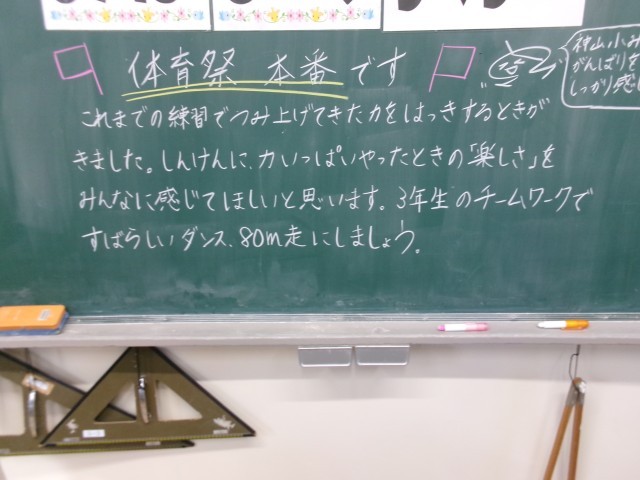 体育祭 本番です
これまでの練習でつみ上げてきた力をはっきするときが
きました。しんけんに、力いっぱいやったときの「楽しさ」を
みんなに感じてほしいと思います。3年生のチームワークで
すばらしいダンス、80m走にしましょう。
神山小み
がんばりを
しっかり感じ